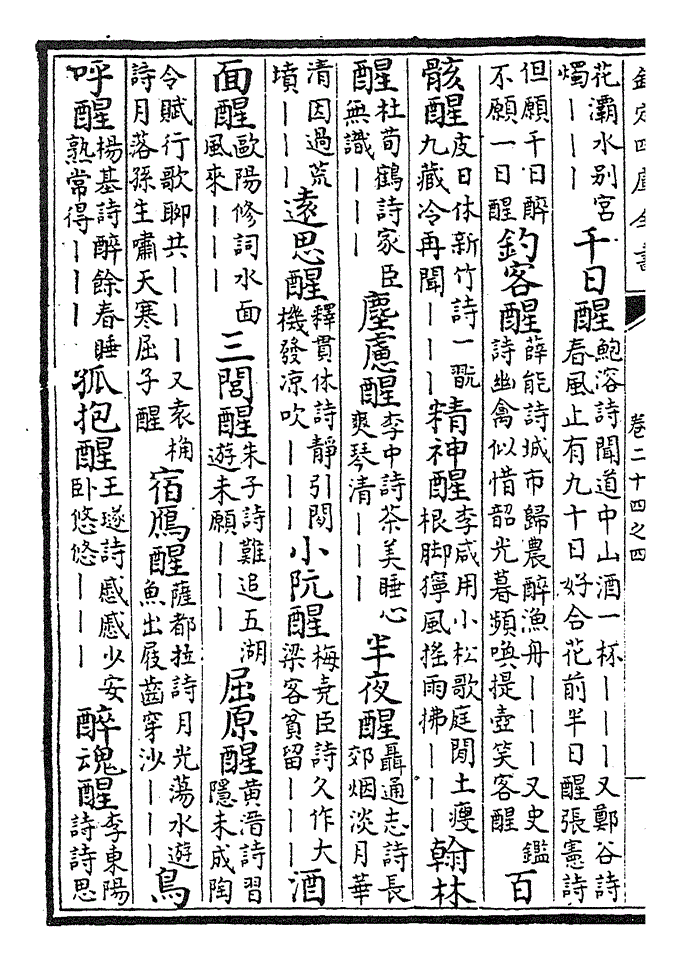 欽定四庫全書 卷二十四之四
花灞水别宮燭｜｜｜千日醒鮑溶詩聞道中山酒一杯｜｜｜又鄭谷詩春風止有九十日好合花前半日醒張憲詩
但願千日醉不願一日醒釣客醒薛能詩城市歸農醉漁舟｜｜｜又史鑑詩幽禽似惜韶光暮頻喚提壺笑客醒百
骸醒皮日休新竹詩一翫九藏冷再聞｜｜｜精神醒李咸用小松歌庭閒土瘦根脚獰風搖雨拂｜｜｜翰林
醒杜荀鶴詩家臣無識｜｜｜塵慮醒李中詩茶美睡心爽琴清｜｜｜半夜醒聶通志詩長郊烟淡月華
清因過荒墳｜｜｜遠思醒釋貫休詩靜引閒機發凉吹｜｜｜小阮醒梅堯臣詩久作大梁客貧留｜｜｜酒
面醒歐陽修詞水面風來｜｜｜三閭醒朱子詩難追五湖遊未願｜｜｜屈原醒黃溍詩習隱未成陶
令賦行歌聊共｜｜｜又袁桷詩月落孫生嘯天寒屈子醒宿鴈醒薩都拉詩月光蕩水遊魚出屐齒穿沙｜｜｜鳥
呼醒楊基詩醉餘春睡熟常得｜｜｜狐抱醒王璲詩慼慼少安卧悠悠｜｜｜醉魂醒李東陽詩詩思